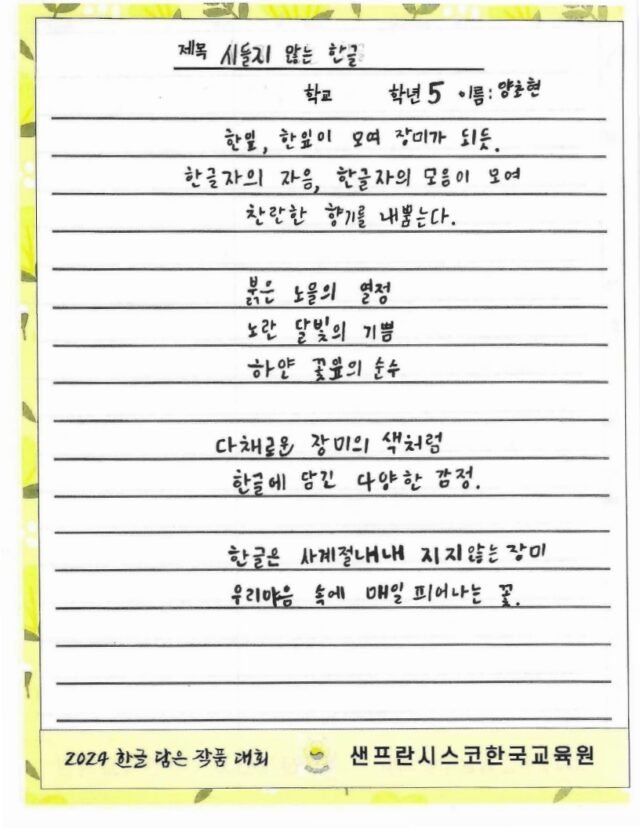 제목 시들지 않는 한글
학교 학년 5 이름: 양초현
한잎, 한잎이 모여 장미가 되듯.
한글자의 자음, 한글자의 모음이 모여
찬란한 향기를 내뿜는다.
붉은 노을의 열정
노란 달빛의 기쁨
하얀 꽃잎의 순수
다채로운 장미의 색처럼
한글에 담긴 다양한 감정.
한글은 사계절내내 지지않는 장미
우리마음 속에 매일 피어나는 꽃.
2024 한글 담은 작품 대회 샌프란시스코한국교육원